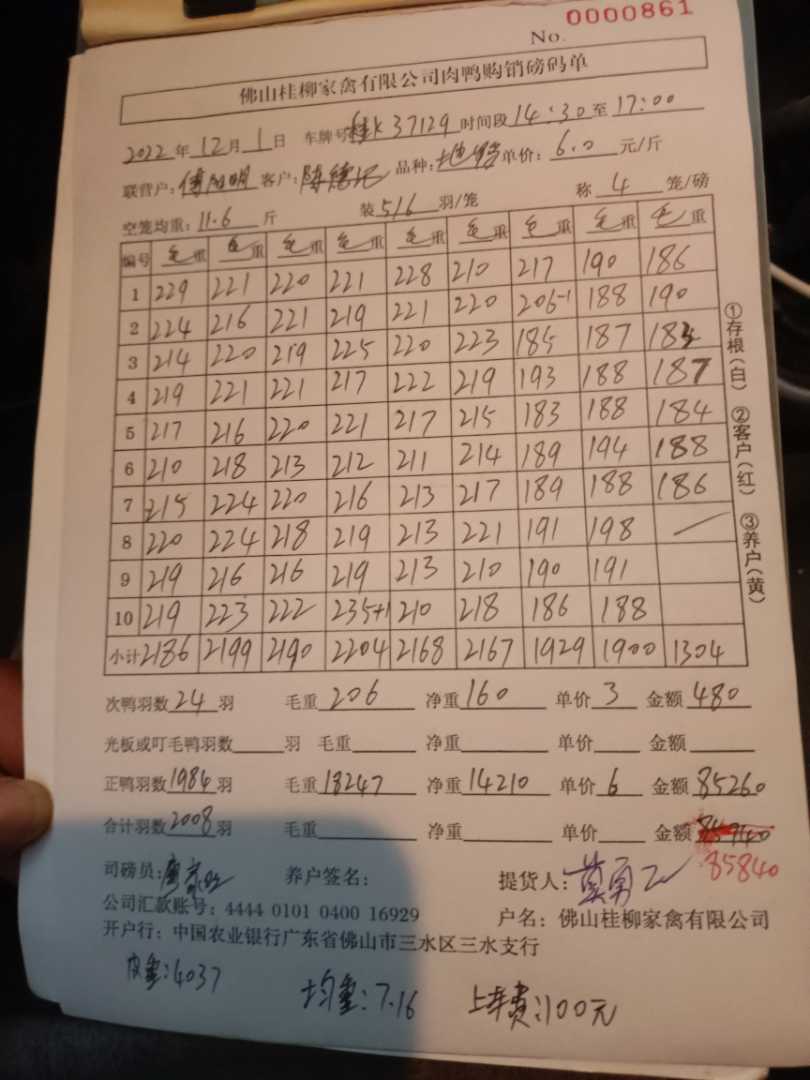 No. 0000861
佛山桂柳家禽有限公司肉鸭购销磅码单
2022年12月1日 车牌号:桂K37129 时间段14:30至17:00
联营户: 客户: 品种: 单价:6.0元/斤
空笼均重:11.6斤 装5/6羽/笼 称4笼/磅
编号 毛重 毛重 毛重 毛重 毛重 毛重 毛重 毛重 毛重
1 229 221 220 221 228 210 217 190 186
2 224 216 221 219 221 220 206-1 188 190
3 214 220 219 225 220 223 185 187
4 219 221 221 217 222 219 193 188 187
5 217 216 220 221 217 215 183 188 184
6 210 218 213 212 211 214 189 194 188
7 215 224 220 216 213 217 189 188 186
8 220 224 218 219 213 221 191 198
9 219 216 216 219 213 210 190 191
10 219 223 222 235+1 210 218 186 188
小计 2186 2199 2190 2204 2168 2167 1929 1900 1304
次鸭羽数24羽 毛重206 净重160 单价3 金额480
光板或叮毛鸭羽数 羽 毛重 净重 单价 金额
正鸭羽数1984羽 毛重18247 净重14210 单价6 金额85260
合计羽数2008羽 毛重 净重 单价 金额
85840
司磅员: 养户签名: 提货人:
公司汇款账号:4444 0101 0400 16929 户名:佛山桂柳家禽有限公司
开户行:中国农业银行广东省佛山市三水区三水支行
皮重:4037 均重:7.16 上车费:100元
①存根(白) ②客户(红) ③养户(黄)